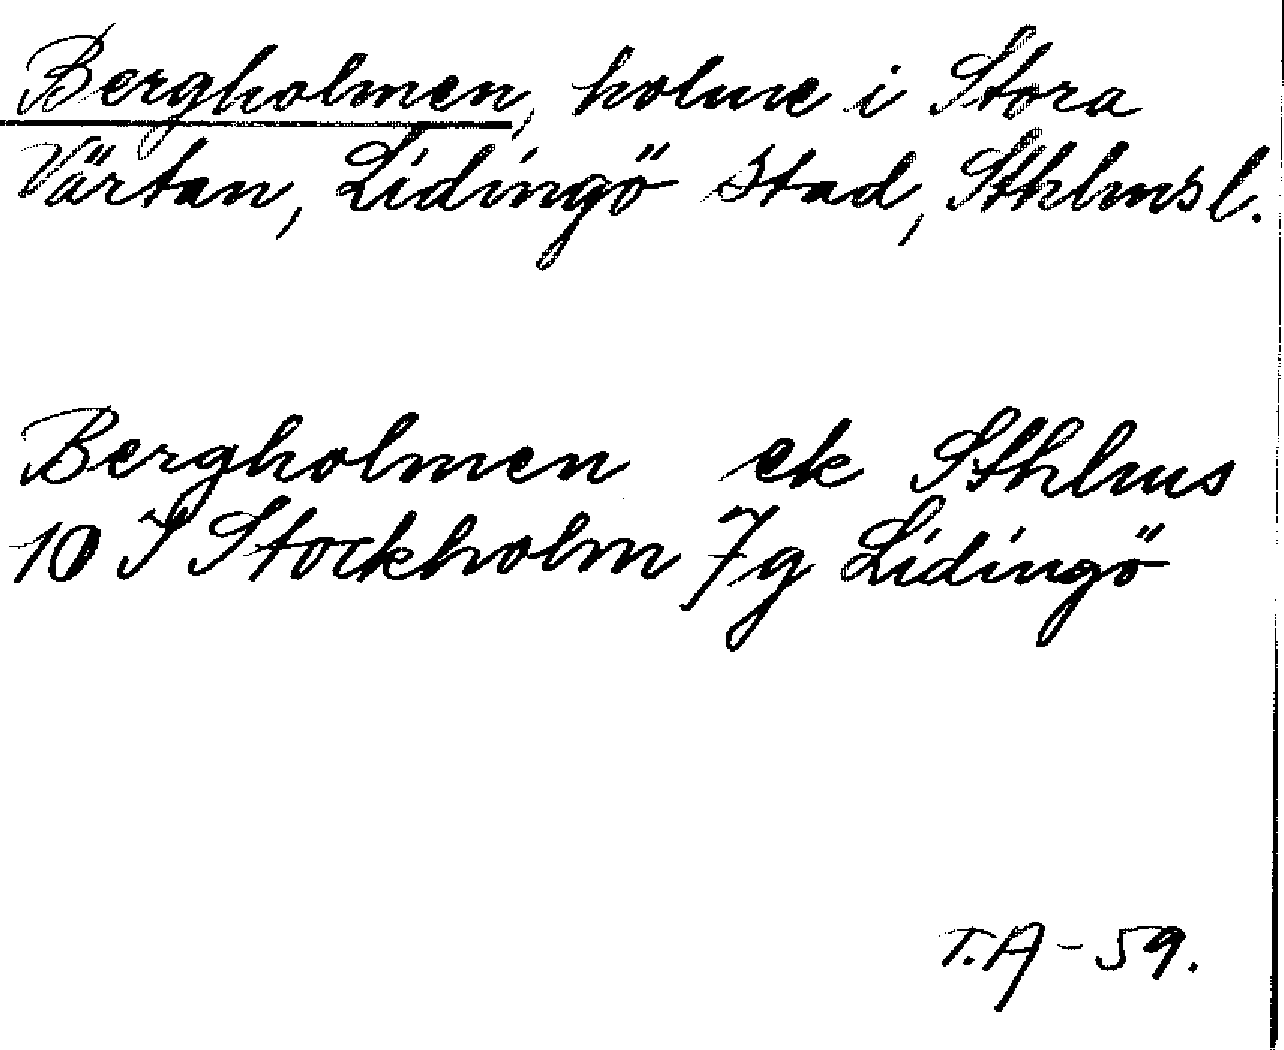 Bergholmen, holme i Stora
Värtan, Lidingö stad, Sthlmsl.
Bergholmen ek Sthlms
10 I Stockholm 7g Lidingö
T.A-59.